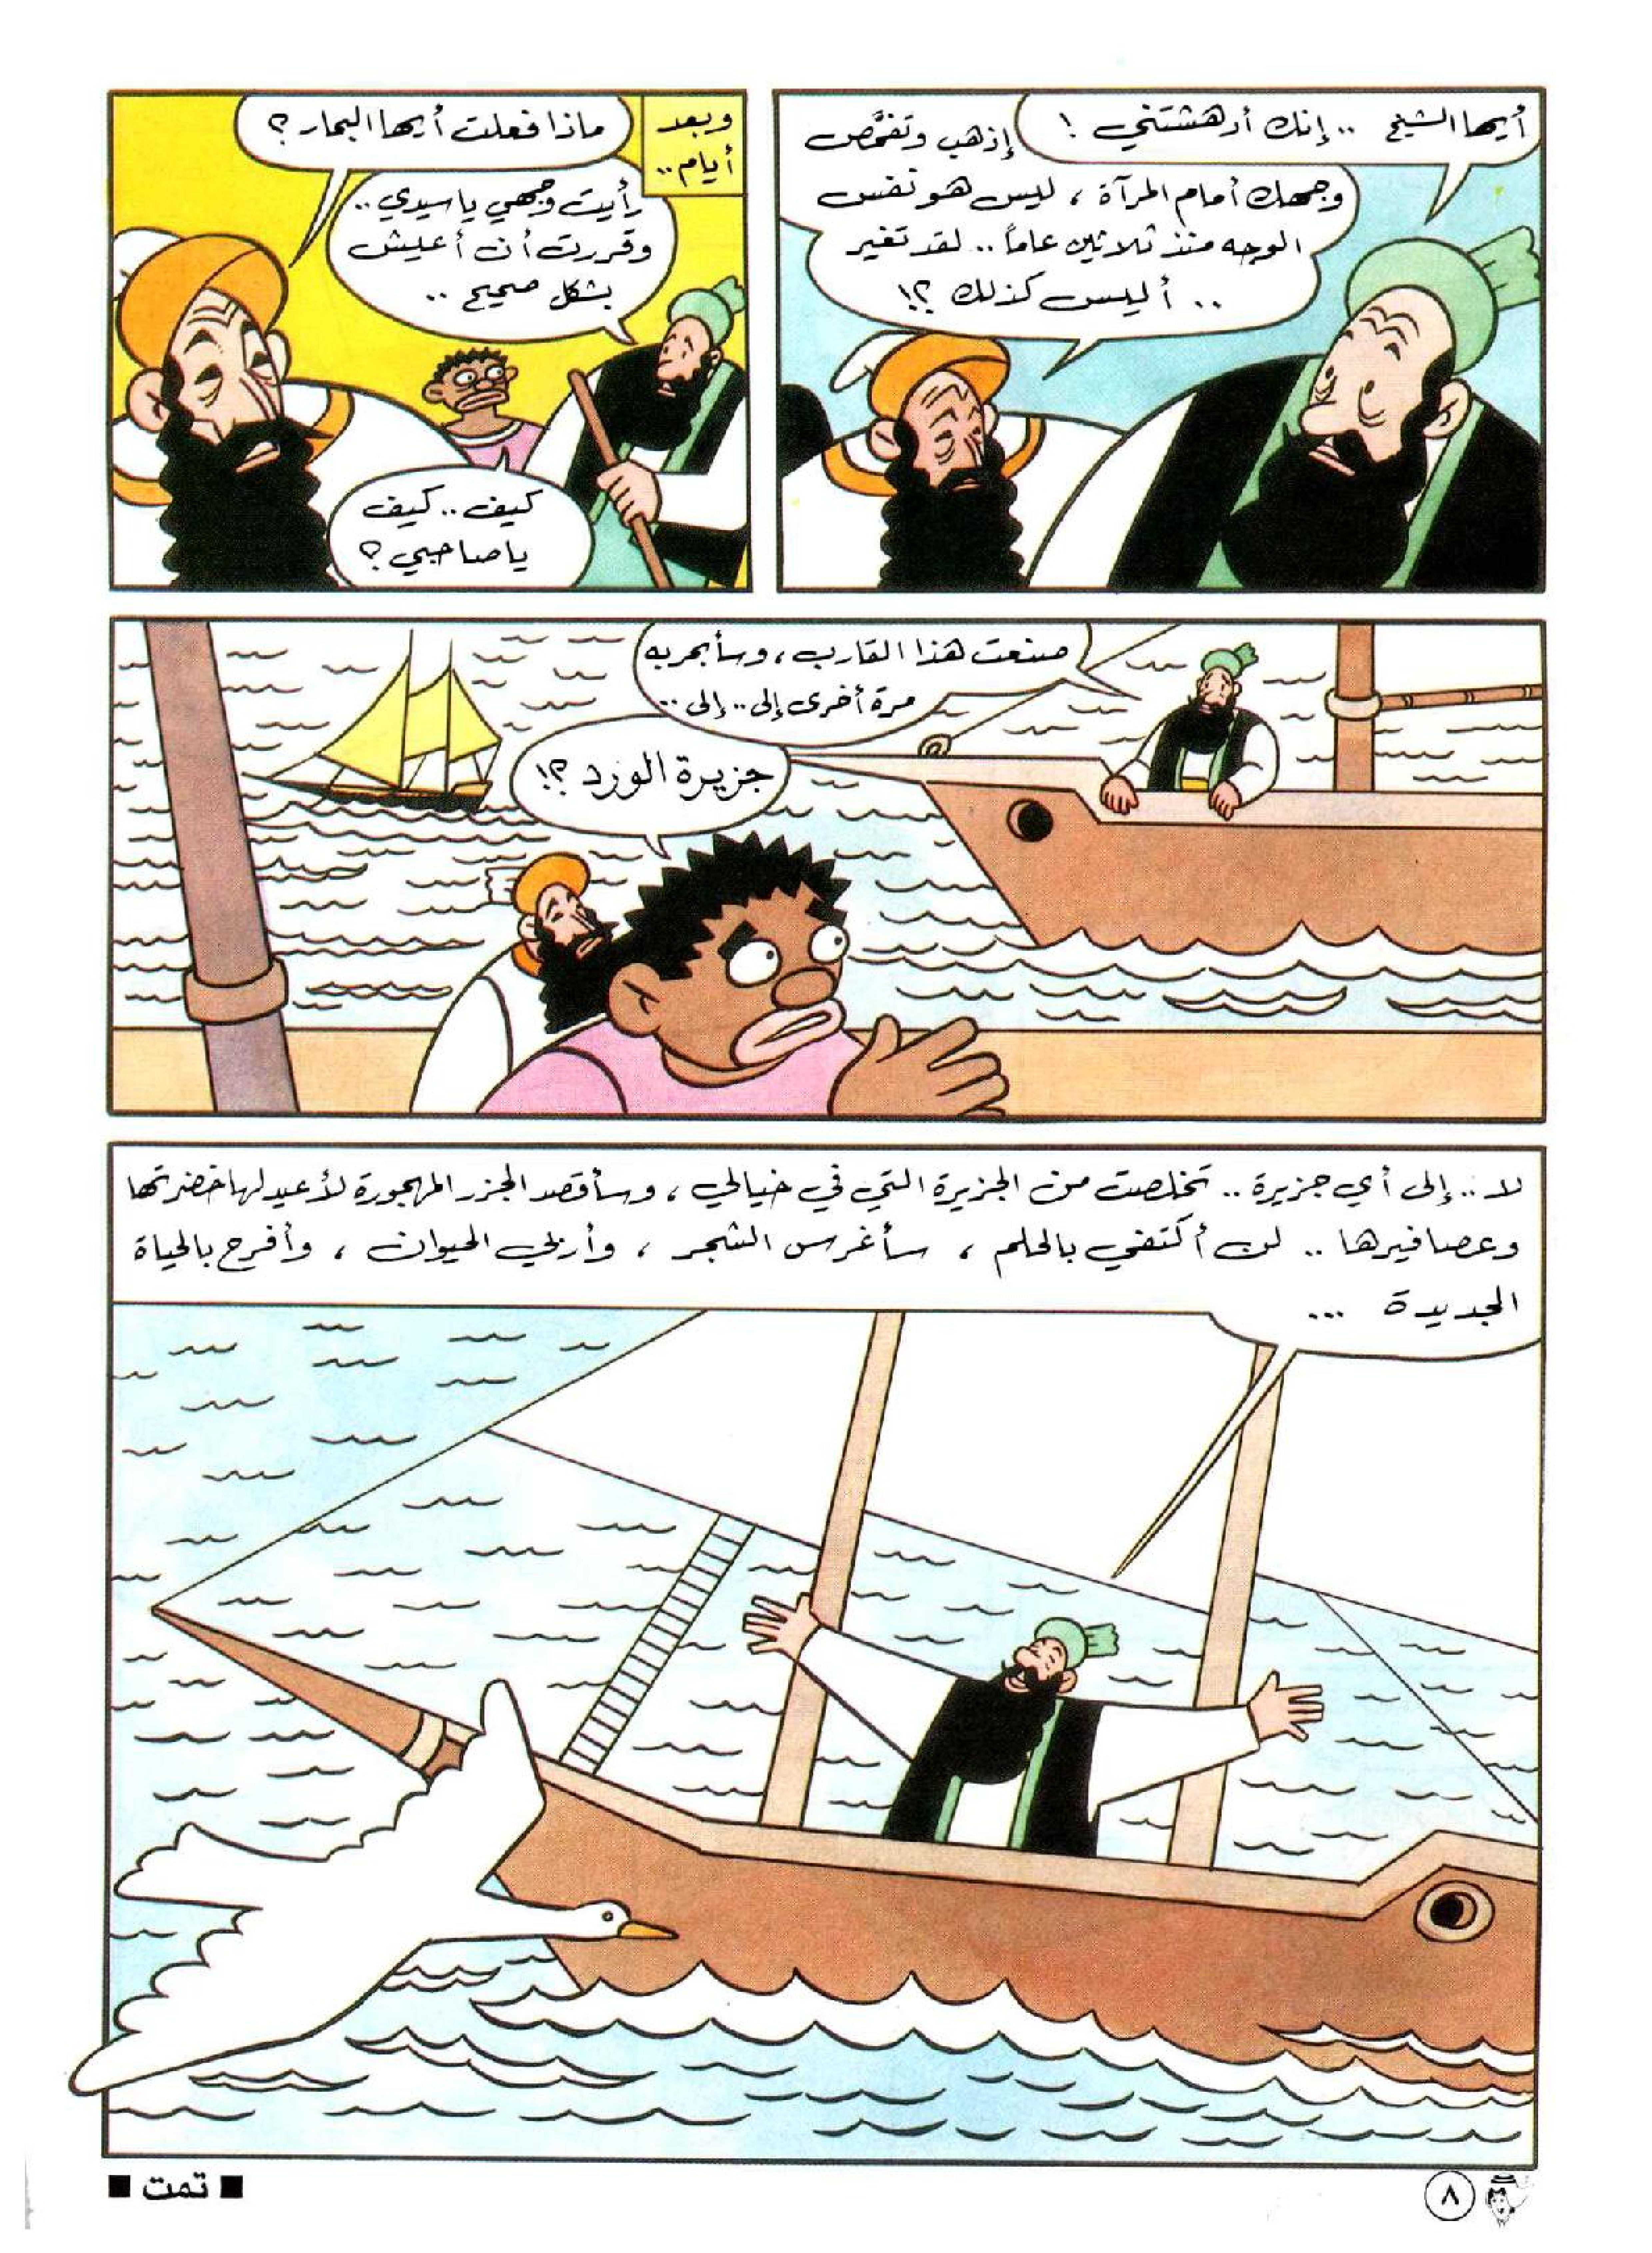 أيها الشيخ .. إنك أدهشتني !
إذهب وتفحَّص
وجهك أمام المرآة ، ليس هو نفس
الوجه منذ ثلاثين عاماً .. لقد تغير
.. أليس كذلك ؟!
وبعد
أيام ..
ماذا فعلت أيها البحار ؟
رأيت وجهي يا سيدي ..
وقررت أن أعيش
بشكل صحيح ..
كيف .. كيف
يا صاحبي ؟
صنعت هذا القارب ، وسأبحر به
مرة أخرى إلى .. إلى ..
جزيرة الورد ؟!
لا .. إلى أي جزيرة .. تخلصت من الجزيرة التي في خيالي ، وسأقصد الجزر المهجورة لأعيد لها خضرتها
وعصافيرها .. لن أكتفي بالحلم ، سأغرس الشجر ، وأربي الحيوان ، وأفرح بالحياة
الجديدة ...
٨
■ تمت ■